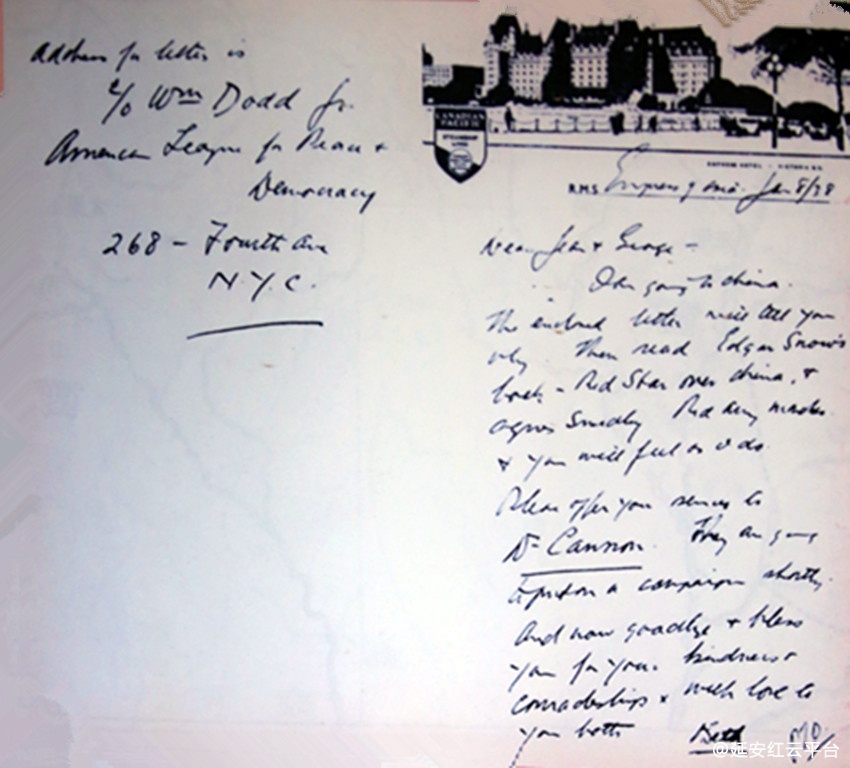 Address for letter is
c/o Wm Dodd Jr.
American League for Peace +
Democracy
268 - Fourth Ave
N.Y.C.
CANADIAN
PACIFIC
STEAMSHIP
LINES
EMPRESS HOTEL - VICTORIA B.C.
R.M.S. Empress of Asia. Jan 8/38
Dear Jean & George -
I am going to China.
The enclosed letter will tell you
why. Then read Edgar Snow's
book - Red Star over China, +
Agnes Smedley Red Army marches
+ you will feel as I do.
Please offer your services to
Dr Cannon. They are going
to put on a campaign shortly.
And now goodbye + bless
you for your kindness +
comradeship + with love to
you both Beth M.D.
@延安红云平台